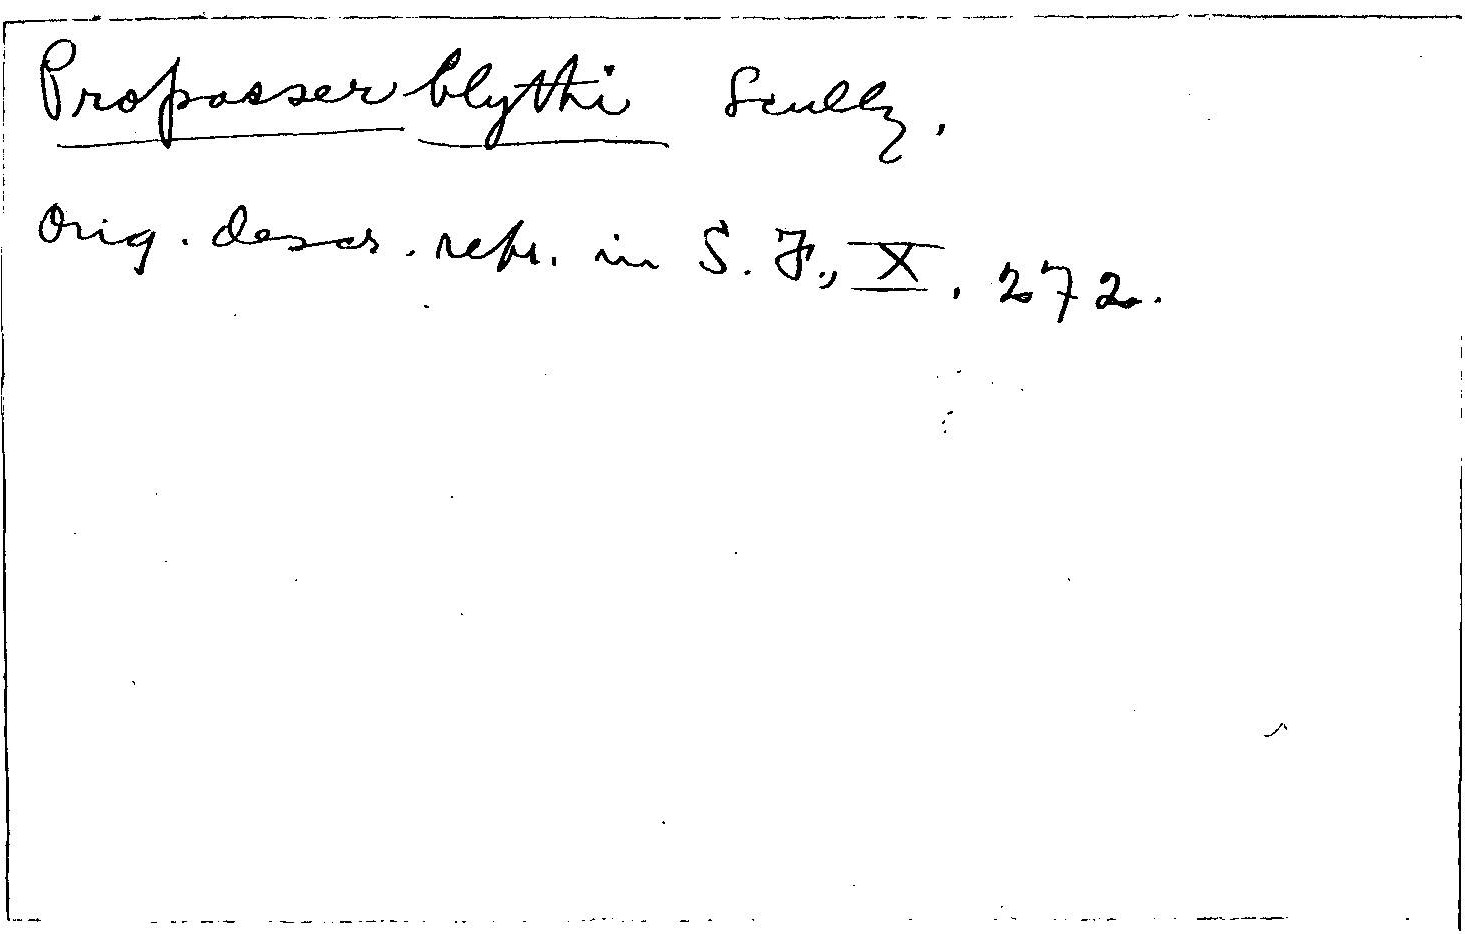 Propasser blythi Scully.
Orig. descr. repr. in S. F., X, 272.